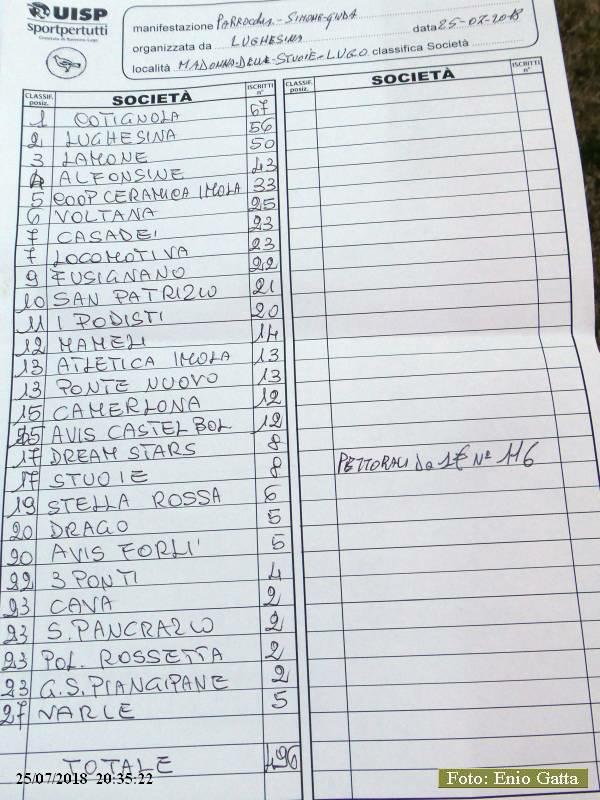 UISP
Sportpertutti
manifestazione PARROCCHIA-SIMONE-GIUDA
organizzata da LUGHESINA data 25-07-2018
località MADONNA-DELLE-STUOIE-LUGO classifica Società
CLASSIF. posiz. SOCIETÀ ISCRITTI n° CLASSIF. posiz. SOCIETÀ ISCRITTI n°
1 COTIGNOLA 67
2 LUGHESINA 56
3 LAMONE 50
4 ALFONSINE 43
5 COOP CERAMICA IMOLA 33
6 VOLTANA 25
7 CASADEI 23
7 LOCOMOTIVA 23
9 FUSIGNANO 22
10 SAN PATRIZIO 21
11 I PODISTI 20
12 MAMELI 14
13 ATLETICA IMOLA 13
13 PONTE NUOVO 13
15 CAMERLONA 12
15 AVIS CASTEL BOL 12
17 DREAM STARS 8
17 STUOIE 8
PETTORALI DA 1€ N° 116
19 STELLA ROSSA 6
20 DRAGO 5
20 AVIS FORLI' 5
22 3 PONTI 4
23 CAVA 2
23 S. PANCRAZIO 2
23 POL. ROSSETTA 2
23 G.S. PIANGIPANE 2
27 VARIE 5
TOTALE 496
25/07/2018 20:35:22
Foto: Enio Gatta